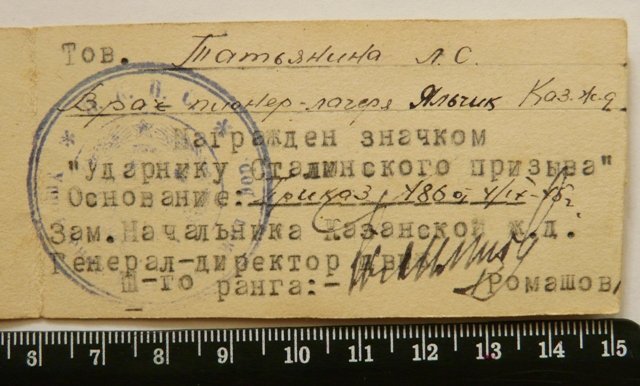 Тов. Татьянина Л.С.
Врач пионер-лагеря Яльчик Каз.ж.д.
Награжден значком
"Ударнику Сталинского призыва"
Основание: приказ 186
Зам.Начальника Казанской ж.д.
Генерал-директор
Ш-го ранга:- Ромашов
6 7 8 9 10 11 12 13 14 15